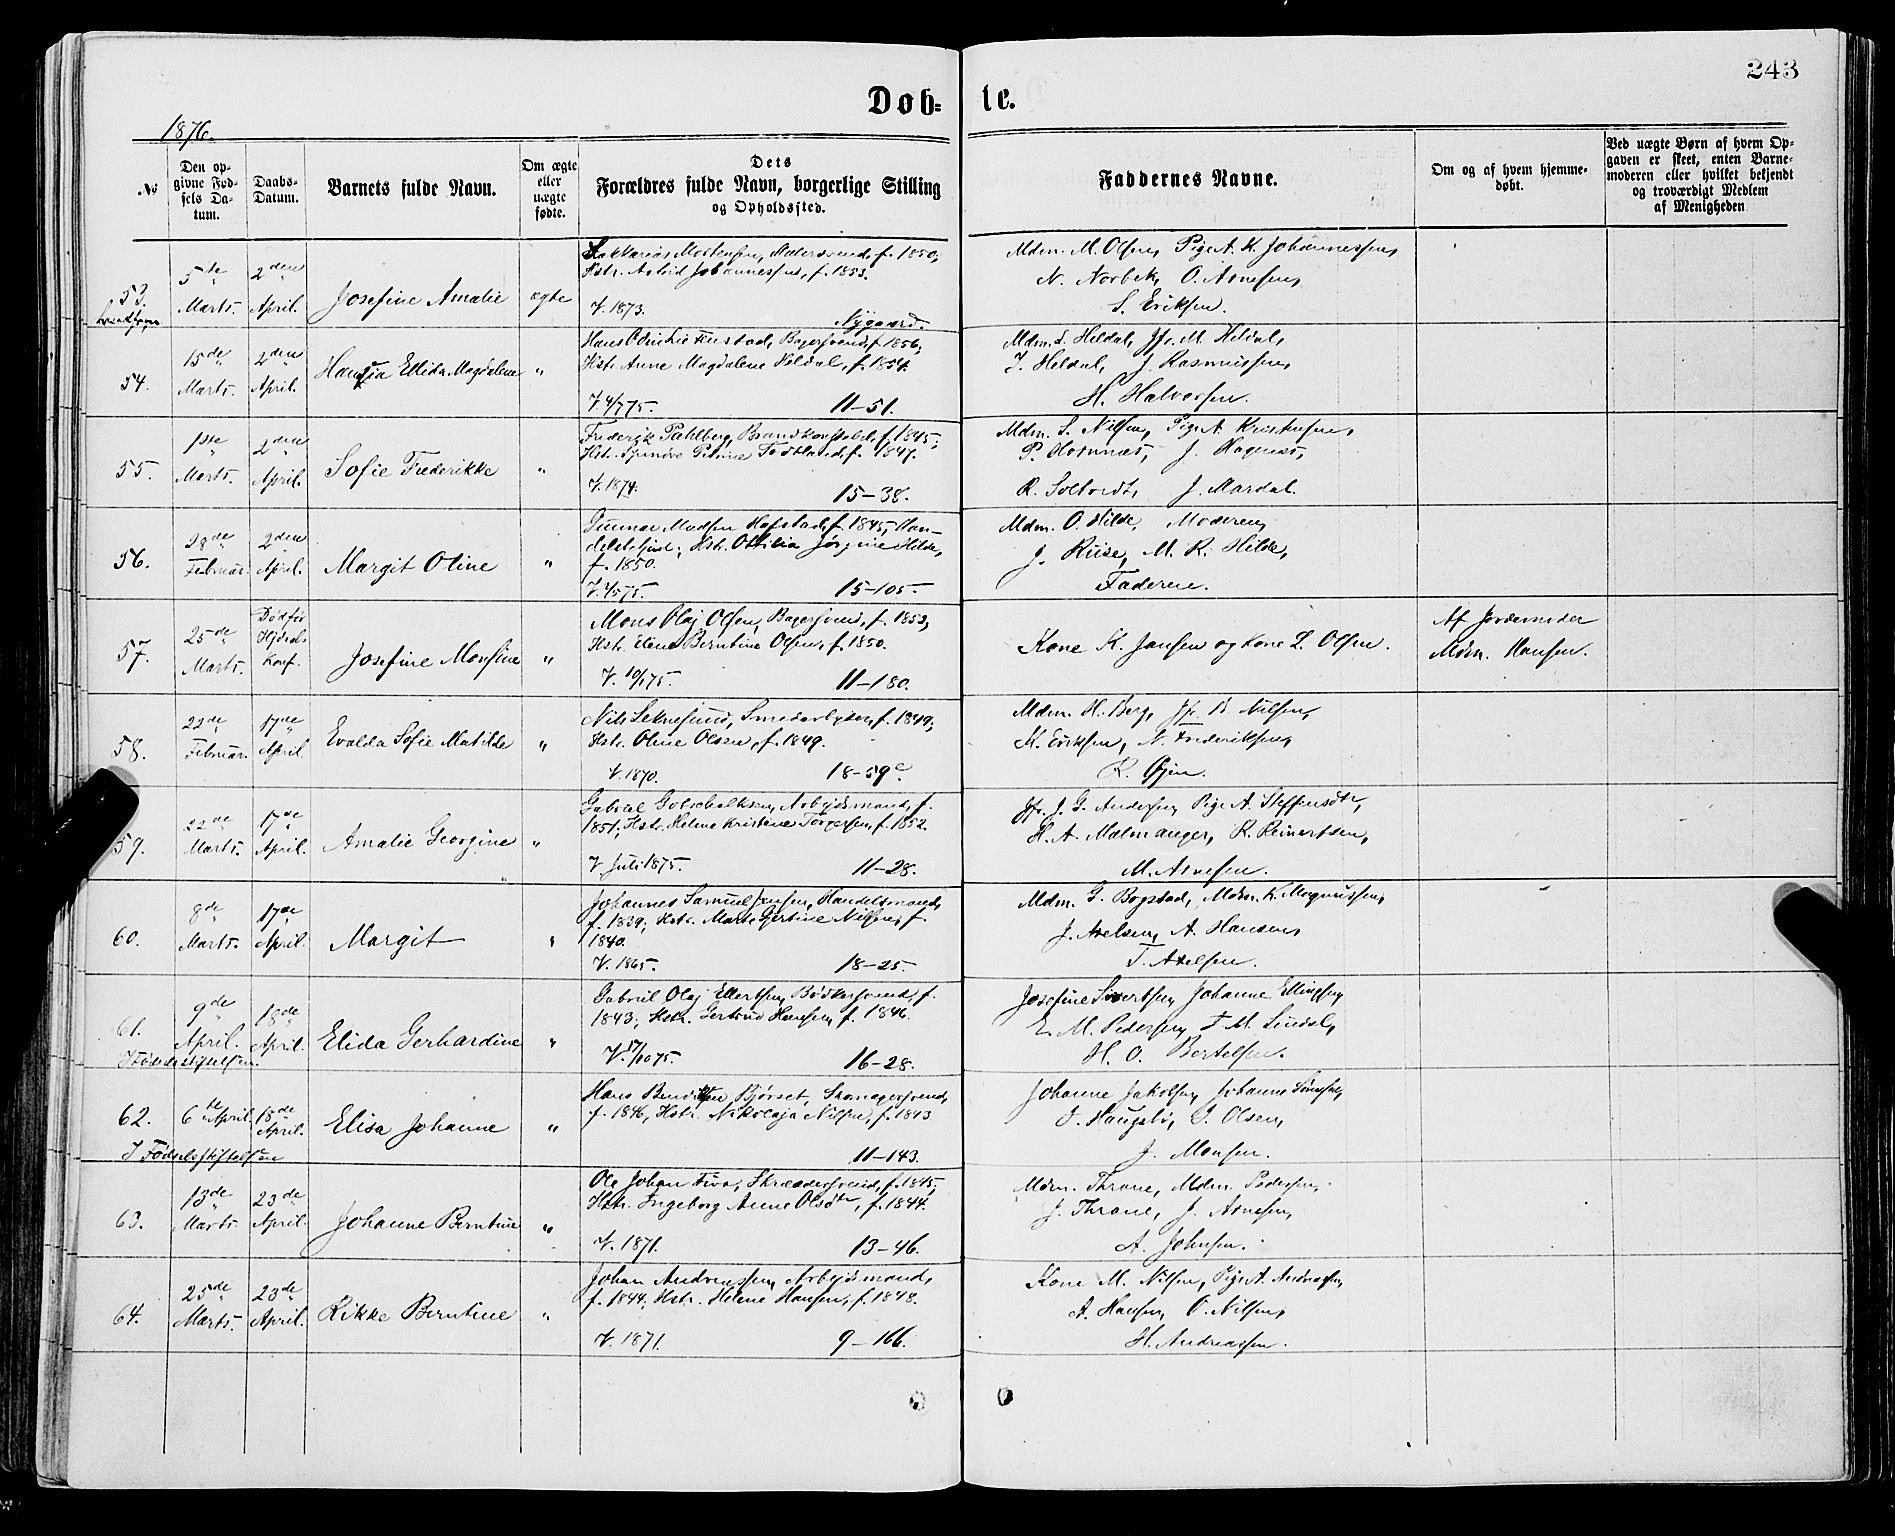 243
Døb- te.
1876.
No
Den opgivne Fødsels Datum.
Daabs-Datum.
Barnets fulde Navn.
Om ægte eller uægte fødte.
Dets Forældres fulde Navn, borgerlige Stilling og Opholdssted.
Faddernes Navne.
Om og af hvem hjemmedøbt.
Ved uægte Børn af hvem Opgaven er skeet, enten Barnemoderen eller hvilket bekjendt og troværdigt Medlem af Menigheden
53. 5te Marts. 2den April. Josefine Amalie ægte
Mortensen, f. 1850,
Hstr. Astrid Johannessen, f. 1853.
V. 1873. Nygaard.
Mdm. M. Olsen, Pige A. K. Johannessen,
N. Norbek, O. Arnesen,
S. Eriksen.
54. 15de Marts. 2den April. Ellida Magdalene "
Bagersvend, f. 1856,
Hstr. Anne Magdalene Heldal, f. 1854.
V. 4/7 75. 11-51.
Mdm. S. Heldal, Jfr. M. Heldal,
J. Heldal, J. Rasmussen,
H. Halvorsen.
55. 1ste Marts. 2den April. Sofie Frederikke "
Frederik Pahlberg, Brandkonstabel, f. 1845,
Hstr. Petrine f. 1847.
V. 1874. 15-38.
Mdm. S. Nilsen, Pige A. Kristensen,
P. J. Hagenæs,
R. J. Mardal.
56. 28de Februar. 2den April. Margit Oline "
Gunnar Madsen Hofstad, f. 1845, Han-
Hstr. Ottilia Jørgine Hilde,
f. 1850.
V. 4/5 75. 15-105.
Mdm. O. Hilde, Moderen,
J. Riise, M. K. Hilde,
Faderen.
57. 25de Marts. Josefine Monsine "
Mons Olaj Olsen, Bagersvend, f. 1853,
Hstr. Elene Berntine Olsen, f. 1850.
V. 75. 11-180.
Kone K. Jansen og Kone L. Olsen.
Af Jordemoder
Mdm. Hansen.
58. 22de Februar. 17de April. Evalda Sofie Matilde "
Nils Smedarbejder, f. 1849,
Hstr. Oline Olsen, f. 1849.
V. 1870. 18-59c.
Mdm. H. Berg, Jfr. B. Nilsen,
K. Eriksen, N. Frederiksen,
K. Øjen.
59. 22de Marts. 17de April. Amalie Georgine "
Gabriel Arbejdsmand, f.
1851, Hstr. Helene Kristine Torgersen, f. 1852.
V. Juli 1875. 11-28.
Jfr. J. G. Andersen, Pige A. Steffensdtr,
H. A. Malmanger, R. Reinertsen,
M. Arnesen.
60. 8de Marts. 17de April. Margit "
Johannes Samuel Jensen, Handelsmand,
f. 1839, Hstr. Marte Gertine Nilsen, f.
1840.
V. 1865. 18-25.
Mdm. G. Bogstad, Mdm. K. Magnussen,
J. Axelsen, A. Hansen,
T. Axelsen.
61. 9de April. 18de April. Elida Gerhardine "
I Fødselsstiftelsen.
Gabriel Olaj Ellertsen, Bødkersvend, f.
1843, Hstr. Gertrud Hansen, f. 1846.
V. 17/10 75. 16-28.
Josefine Sivertsen, Johanne Ellingsen,
E. M. Pedersen, T. M. Lindal,
H. O. Bertelsen.
62. 6te April. 18de April. Elisa Johanne "
I Fødselsstiftelsen
Hans Bendiksen Bjørset, Skomagersvend,
f. 1846, Hstr. Nikolaja Nilsen, f. 1843.
11-143.
Johanne Jakobsen, Johanne
J. Olsen,
J. Monsen.
63. 13de Marts. 23de April. Johanne Berntine "
Ole Johan Skræddersvend, f. 1845,
Hstr. Ingeborg Anne Olsdtr, f. 1844.
V. 1871. 13-46.
Mdm. Thrane, Mdm. Pedersen,
J. Thrane, J. Arnesen,
A. Johnsen.
64. 25de Marts. 23de April. Rikke Berntine "
Johan Andreassen, Arbejdsmand,
f. 1844. Hstr. Helene Hansen, f. 1848.
V. 1871. 9-166.
Kone M. Nilsen, Pige A. Andreasen,
A. Hansen, O. Nilsen,
H. Andreassen.